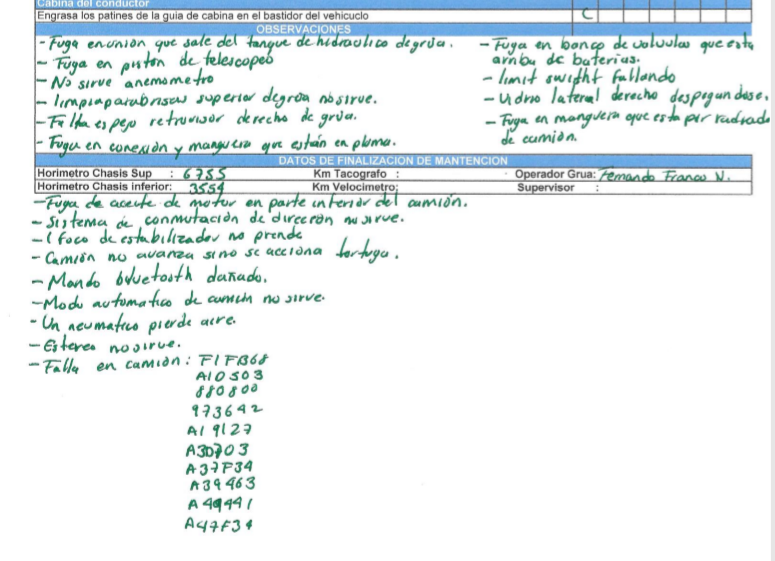 Cabina del conductor
Engrasa los patines de la guia de cabina en el bastidor del vehicuclo C
OBSERVACIONES
- Fuga en unión que sale del tanque de hidraulico de grúa.
- Fuga en piston de telescopeo
- No sirve anemometro
- limpiaparabrisas superior de grúa no sirve.
- Falta espejo retrovisor derecho de grúa.
- Fuga en conexión y manguera que están en pluma.
- Fuga en banco de valvulas que esta
arriba de baterias.
- limit swight fallando
- Vidrio lateral derecho despegandose.
- Fuga en manguera que esta por radiador
de camión.
DATOS DE FINALIZACION DE MANTENCION
Horimetro Chasis Sup : 6755 Km Tacografo : Operador Grua: Fernando Franco N.
Horimetro Chasis inferior: 3554 Km Velocimetro: Supervisor :
- Fuga de aceite de motor en parte inferior del camión.
- Sistema de conmutación de dirección no sirve.
- 1 foco de estabilizador no prende
- Camión no avanza sino se acciona tortuga.
- Mando bluetooth dañado.
- Modo automatico de camión no sirve.
- Un neumatico pierde aire.
- Estereo no sirve.
- Falla en camión: F1FB68
A10503
880800
973642
A19127
A30703
A37F34
A39463
A49441
A47F34